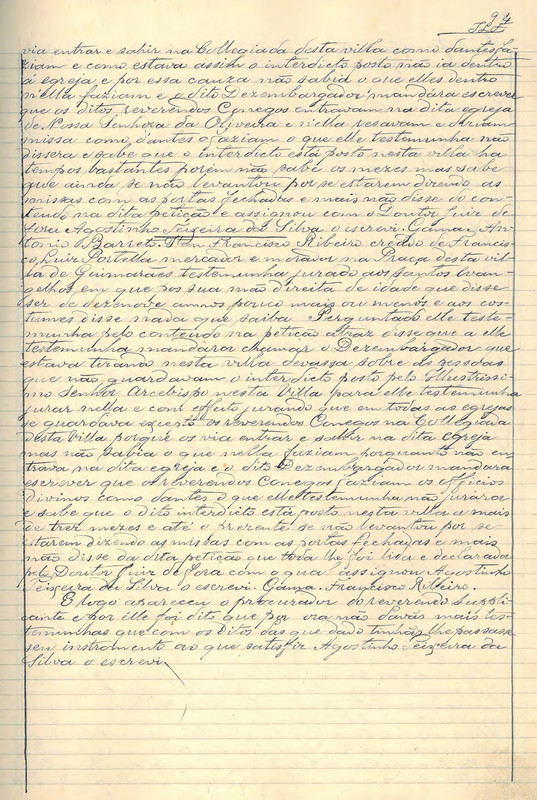 94
via entrar e sahir na Collegiada desta villa como dantes fa-
ziam e como estava assim o interdicto posto não ia dentro
á egreja e por essa cauza não sabia o que elles dentro
n'ella faziam e o dito Dezembargador mandara escrever
que os ditos reverendos Conegos entravam na dita egreja
de Nossa Senhora da Oliveira e n'ella resavam e diziam
missa como d'antes o faziam o que elle testemunha não
dissera e sabe que o interdicto está posto nesta villa ha
tempos bastantes porem não sabe os mezes mas sabe
que ainda se não levantou por se estarem dizendo as
missas com as portas fechadas e mais não disse do con-
teudo na dita petição e assignou com o Doutor Juiz de
Fora Agostinho Teixeira da Silva o escrevi. Gama. An-
tonio Barreto. Item Francisco Ribeiro creado de Francis-
co Luiz Portella mercador e morador na Praça desta vil-
la de Guimarães testemunha jurado aos santos Evan-
gelhos em que pos sua mão direita de idade que disse
ser de dezenove annos pouco mais ou menos e aos cos-
tumes disse nada que saiba Perguntado elle teste-
munha pelo conteudo na petição atraz disse que a elle
testemunha mandara chamar o Dezembargador que
estava tirando nesta villa devassa sobre as pessoas
que não guardavam o interdicto posto pelo Illustrissi-
mo Senhor Arcebispo nesta Villa para elle testemunha
jurar nella e com effeito jurando que em todas as egrejas
se guardava excepto os reverendos Conegos na Collegiada
desta Villa porque os via entrar e sahir na dita egreja
mas não sabia o que nella faziam porquanto não en-
trava na dita egreja e o dito Dezembargador mandara
escrever que os reverendos Conegos faziam os officios
divinos como dantes o que elle testemunha não jurara
e sabe que o dito interdicto está posto nesta villa a mais
de trez mezes e até o prezente se não levantou por se
estarem dizendo as missas com as portas fechadas e mais
não disse da dita petição que toda lhe foi lida e declarada
pelo Doutor Juiz de Fora com o qual assignou Agostinho
Teixeira da Silva o escrevi. Gama. Francisco Ribeiro.
E logo apareceu o procurador do reverendo Suppli-
cante e por elle foi dito que por ora não dava mais tes-
temunhas que com os ditos das que dado tinha lhe passasse
seu instromento ao que satisfiz Agostinho Teixeira da
Silva o escrevi